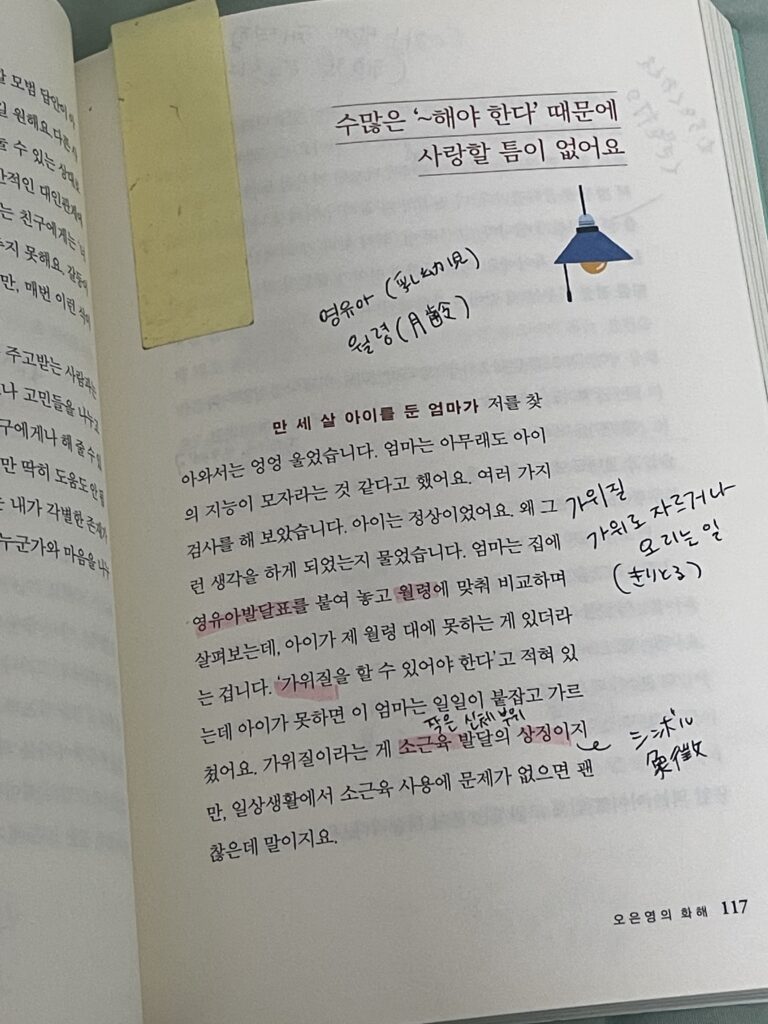 모범 답안이
원해요. 다른
수 있는 상대
적인 대인관계
는 친구에게는
지 못해요. 갈등이
만, 매번 이런 식의
주고받는 사람과는
나 고민들을 나누고
구에게나 해 줄 수 있
만 딱히 도움도 안
는 내가 각별한 존재가
누군가와 마음을 나누
수많은 ‘~해야 한다’ 때문에
사랑할 틈이 없어요
영유아 (乳幼児)
월령 (月齢)
만 세 살 아이를 둔 엄마가 저를 찾
아와서는 엉엉 울었습니다. 엄마는 아무래도 아이
의 지능이 모자라는 것 같다고 했어요. 여러 가지
검사를 해 보았습니다. 아이는 정상이었어요. 왜 그
런 생각을 하게 되었는지 물었습니다. 엄마는 집에
영유아발달표를 붙여 놓고 월령에 맞춰 비교하며
살펴보는데, 아이가 제 월령 대에 못하는 게 있더라
는 겁니다. ‘가위질을 할 수 있어야 한다’고 적혀 있
는데 아이가 못하면 이 엄마는 일일이 붙잡고 가르
작은 신체 부위
쳤어요. 가위질이라는 게 소근육 발달의 상징이지
만, 일상생활에서 소근육 사용에 문제가 없으면 괜
찮은데 말이지요.
가위질
가위로 자르거나
오리는 일
(きりとる)
シンボル
象徴
오은영의 화해 117